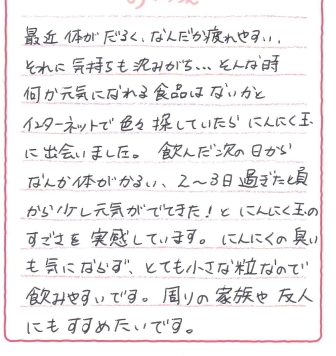 最近体がだるく、なんだか疲れやすい、
それに気持ちも沈みがち…そんな時
何か元気になれる食品はないかと
インターネットで色々探していたらにんにく玉
に出会いました。飲んだ次の日から
なんか体がかるい、2〜3日過ぎた頃
から少し元気がでてきた！とにんにく玉の
すごさを実感しています。にんにくの臭い
も気にならず、とても小さな粒なので
飲みやすいです。周りの家族や友人
にもすすめたいです。